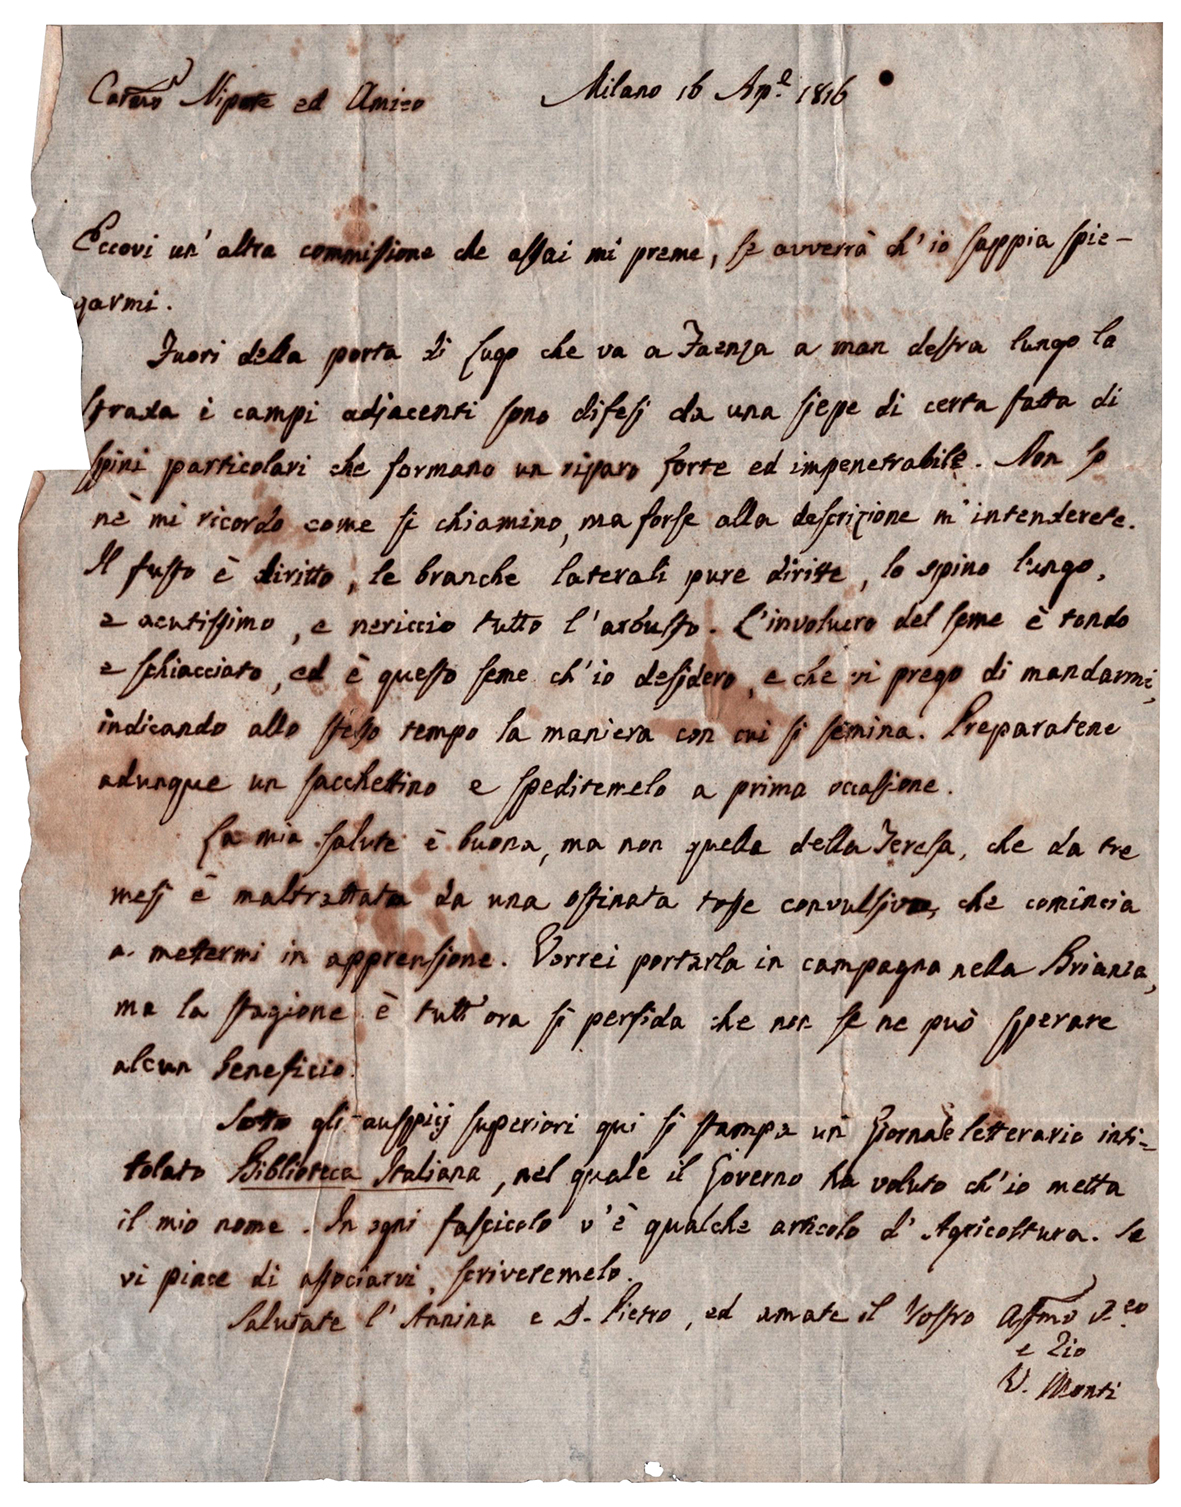 Carmo Nipote ed Amico Milano 16 Aple 1816
Eccovi un' altra commissione che assai mi preme, se avverrà ch' io sappia spie-
garmi.
Fuori della porta di Lugo che va a Faenza a man destra lungo la
strada i campi adjacenti sono difesi da una siepe di certa fatta di
spini particolari che formano un riparo forte ed impenetrabile. Non so
nè mi ricordo come si chiamino, ma forse alla descrizione m' intenderete.
Il fusto è diritto, le branche laterali pure diritte, lo spino lungo,
e acutissimo, e nericcio tutto l' arbusto. L' involucro del seme è tondo
e schiacciato, ed è questo seme ch' io desidero, e che vi prego di mandarmi,
indicando allo stesso tempo la maniera con cui si semina. Preparatene
adunque un sacchettino e speditemelo a prima occasione.
La mia salute è buona, ma non quella della Teresa, che da tre
mesi è maltrattata da una ostinata tosse convulsiva, che comincia
a mettermi in apprensione. Vorrei portarla in campagna nella Brianza,
ma la stagione è tutt' ora sì perfida che non se ne può sperare
alcun beneficio.
Sotto gli auspicj superiori qui si stampa un Giornale letterario inti-
tolato Biblioteca Italiana, nel quale il Governo ha voluto ch' io metta
il mio nome. In ogni fascicolo v' è qualche articolo d' Agricoltura. Se
vi piace di associarvi, scriveremelo.
Salutate l' Annina e D. Pietro, ed amate il Vostro Affmo
e Zio
V. Monti